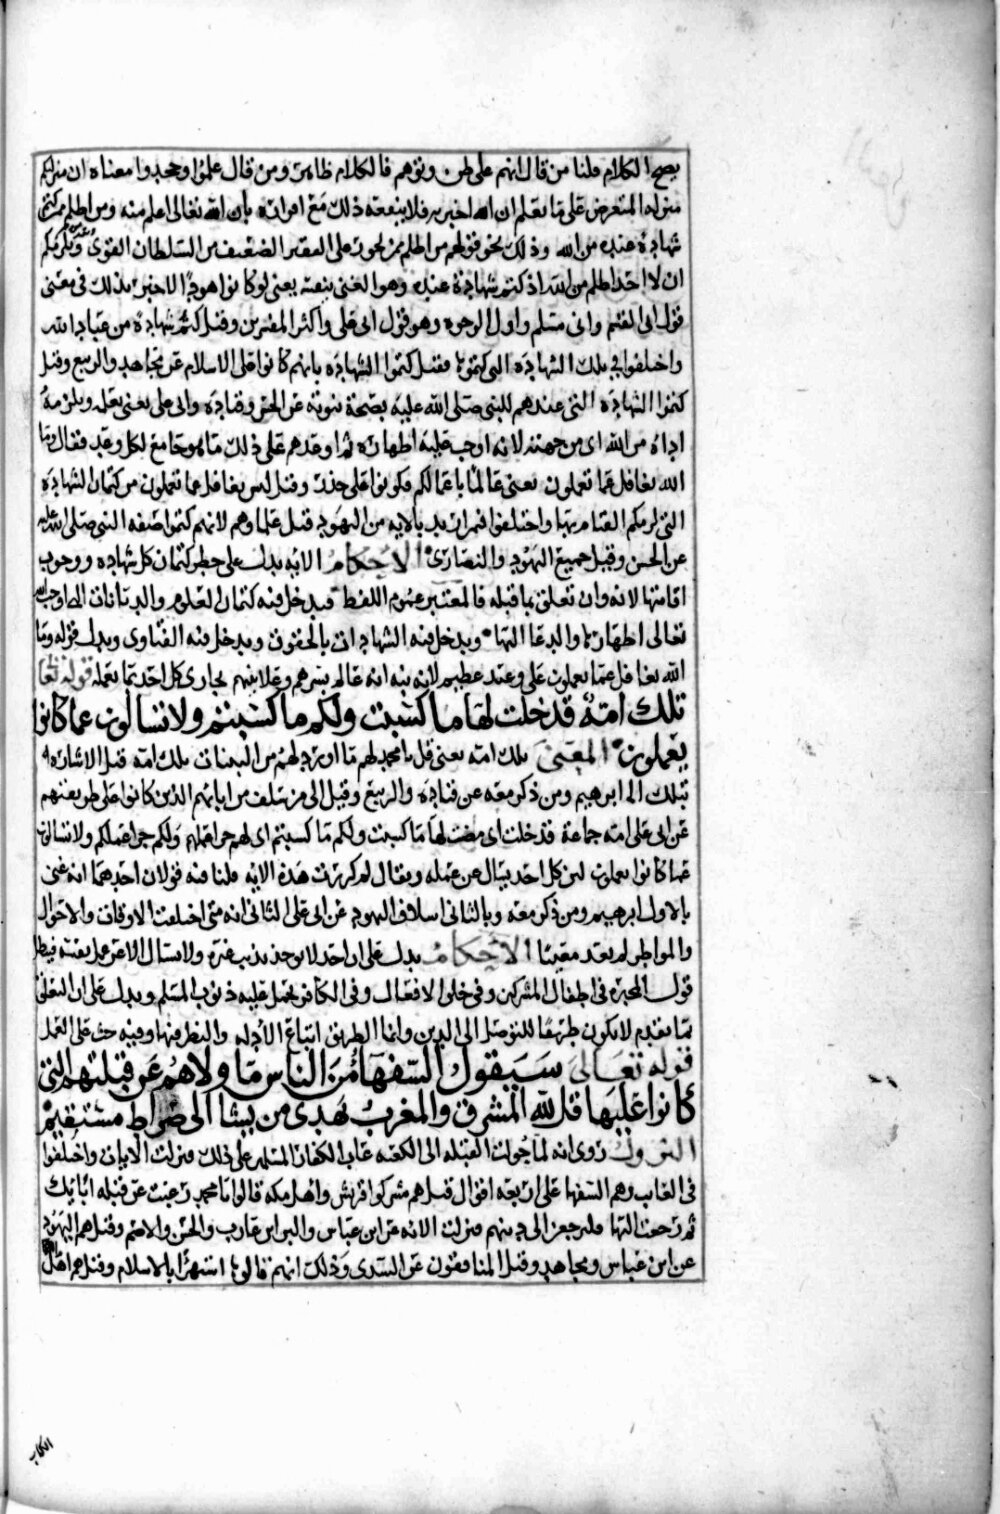 يصح الكلام قلنا من قال انهم على ظن وتوهم فالكلام ظاهر ومن قال علموا وجحدوا معناه ان منزلتكم
منزلة المعترض على ما يعلم ان الله اخبر به فلا ينفعه ذلك مع اقراره بان الله تعالى اعلم منه ومن اظلم ممن كتم
شهادة عنده من الله وذلك نحو قولهم من اظلم ممن يجور على الفقير الضعيف من السلطان القوى
ان لا احد اظلم من الله اذ كتم شهادة عنده وهو الغنى بنفسه يعنى لو كانوا هودا لاخبر بذلك في معنى
قول ابى القسم وابى مسلم واول الوجوه وهو قول ابى على واكثر المفسرين وقيل كتم شهادة من عباد الله
واختلفوا في تلك الشهادة التى كتموها فقيل كتموا الشهادة بانهم كانوا على الاسلام عن مجاهد والربيع وقيل
كتموا الشهادة التى عندهم للنبى صلى الله عليه بصحة نبوته عن الحسن وقتادة وابى على يعنى بعلمه ويلزمه
اداه من الله اى من جهته لانه اوجب عليه اظهاره ثم اوعدهم على ذلك ما هو جامع لكل وعيد فقال وما
الله بغافل عما تعملون يعنى عالما باعمالكم فكونوا على حذر وقيل ليس بغافل عما تعملون من كتمان الشهادة
التى لزمكم القيام بها واختلفوا فيمن اريد بالاية من اليهود قيل علماوهم لانهم كتموا صفة النبى صلى الله عليه
عن الحسن وقيل جميع اليهود والنصارى الاحكام الاية يدل على حظر كتمان كل شهادة ووجوب
اقامتها لانه وان تعلق بما قبله فالمعتبر عموم اللفظ فيدخل فيه كتمان العلوم والديانات التى اوجب الله
تعالى اظهارها والدعا اليها ويدخل فيه الشهادات بالحقوق ويدخل فيه الفتاوى ويدل قوله وما
الله بغافل عما يعملون على وعيد عظيم لانه نبه انه عالم بسرهم وعلانيتهم يجازى كل احد بما يعمله قوله تعالى
تلك امة قد خلت لها ما كسبت ولكم ما كسبتم ولا تسالون عما كانوا
يعملون المعنى تلك امة يعنى قل يا محمد لهم ما اورد لهم من البينات تلك امة قيل الاشارة
بتلك الى ابرهيم ومن ذكر معه عن قتادة والربيع وقيل الى من سلف من ابايهم الذين كانوا على طريقتهم
عن ابى على امة جماعة قد خلت اى مضت لها ما كسبت ولكم ما كسبتم اى لهم جزا عملهم ولكم جزا عملكم ولا تسالون
عما كانوا يعملون لان كل احد يسال عن عمله ويقال لم كررت هذه الاية قلنا فيه قولان احدهما انه عنى
بالاول ابرهيم ومن ذكر معه وبالثانى اسلاف اليهود عن ابى على الثانى انه متى اختلفت الاوقات والاحوال
والمواطن لم يعد معيبا الاحكام يدل على ان احدا لا يوخذ بذنب غيره ولا يسال الا عن عمل نفسه فيبطل
قول المجبرة فى اطفال المشركين وفى خلق الافعال وفى الكافر يحمل عليه ذنوب المسلم ويدل على ان التعلق
بما تقدم لا يكون طريقا للتوصل الى الدين وانما الطريق اتباع الادلة والنظر فيها وفيه حث على العمل
قوله تعالى سيقول السفهاء من الناس ما ولاهم عن قبلتهم التى
كانوا عليها قل لله المشرق والمغرب يهدى من يشا الى صراط مستقيم
النزول روى انه لما حولت القبلة الى الكعبة عاب الكفار المسلمين على ذلك فنزلت الايات واختلفوا
فى العايب وهم السفها على اربعة اقوال قيل هم مشركوا قريش واهل مكة قالوا يا محمد رغبت عن قبلة ابايك
ثم رجعت اليها فلترجعن الى دينهم فنزلت الاية عن ابن عباس والبرا ابن عازب والحسن والاصم وقيل هم اليهود
عن ابن عباس ومجاهد وقيل المنافقون عن السدى وذلك انهم قالوا استهزا بالاسلام وقيل هم اهل
الكتاب